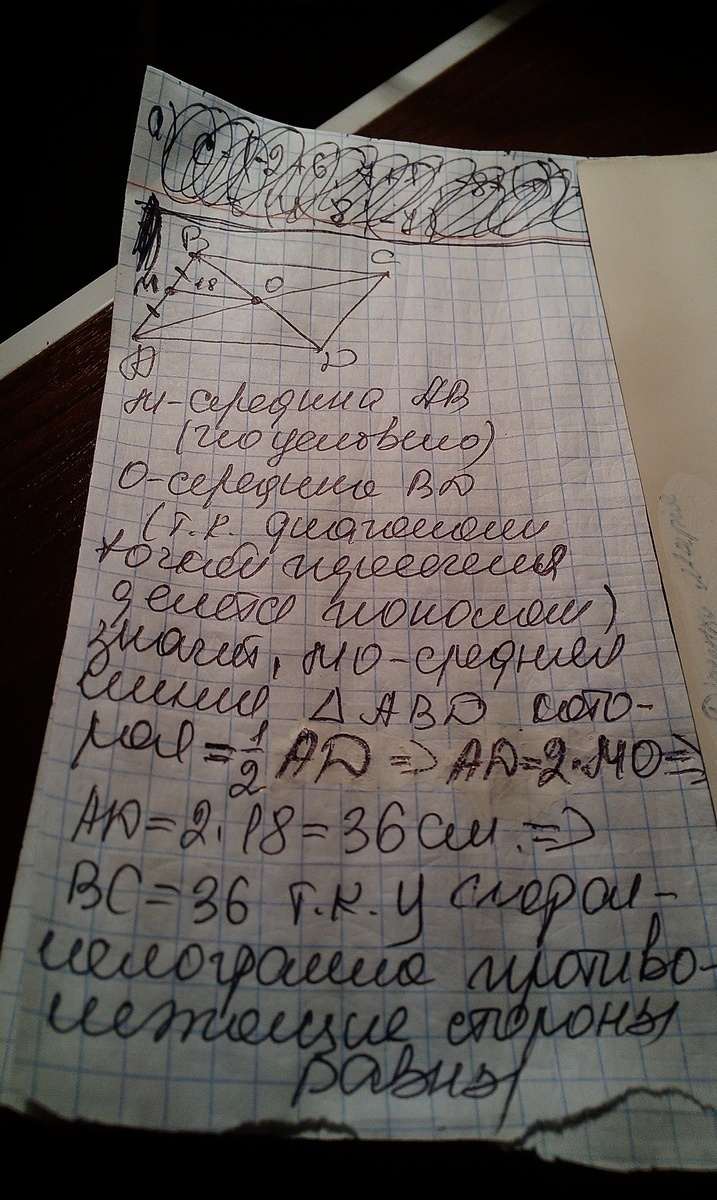 а)
B
C
M
18
O
A
D
М-середина AB
(по условию)
О-середина BD
(т.к. диагонали
точкой пересечения
делятся пополам)
значит, MO-средняя
линия △ABD кото-
рая = 1/2 AD => AD=2·MO =>
AD=2·18=36см. =>
BC=36 т.к. у
противо-
лежащие стороны
равны